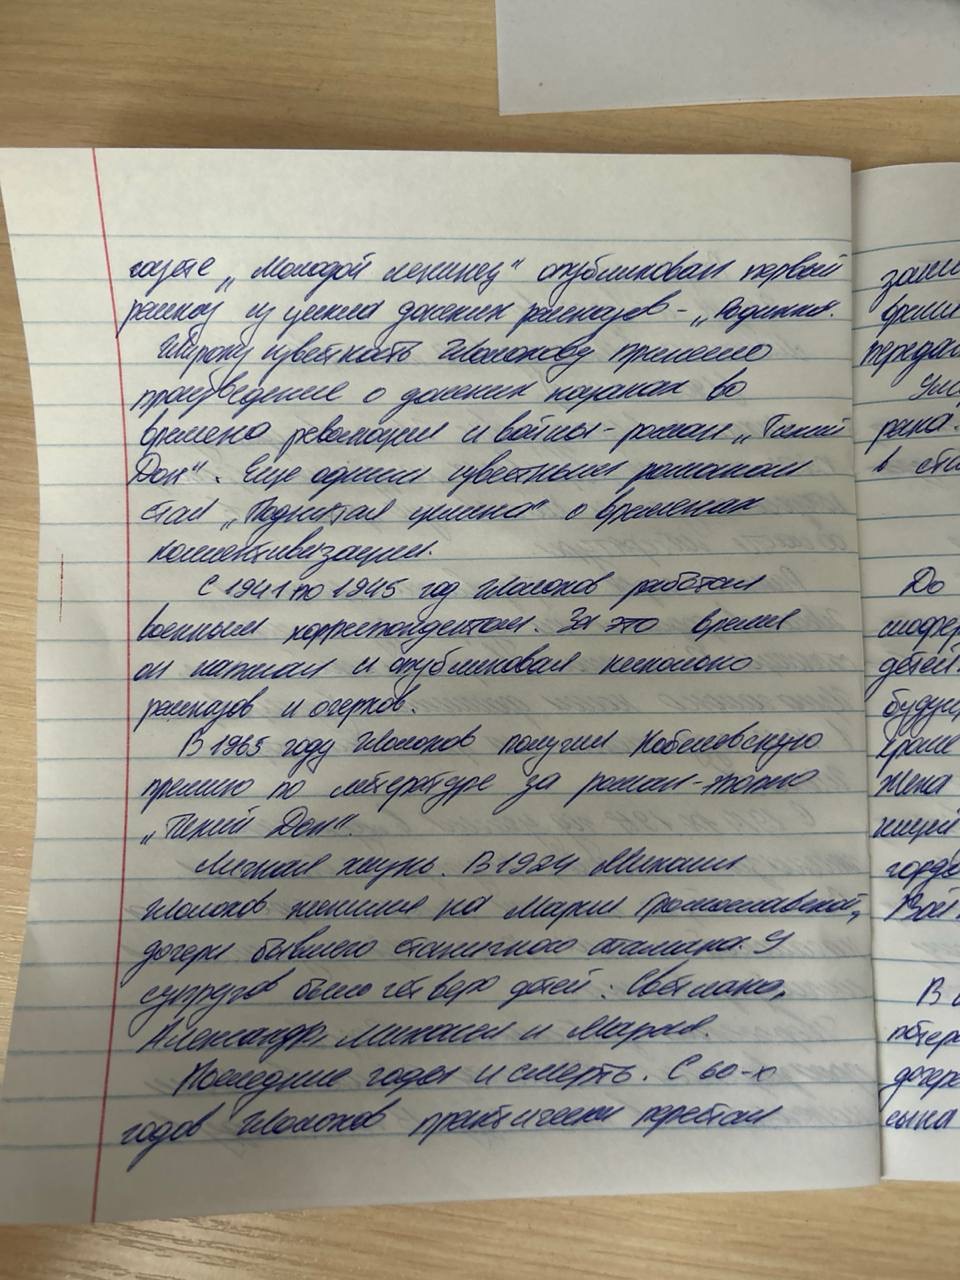 газете „Молодой ленинец" опубликовал первый
рассказ из цикла донских рассказов - „Родинка.
Широку известность Шолохову принесло
произведение о донских казаках во
времена революции и войны - роман „Тихий
Дон". Еще одним известным романом
стал „Поднятая целина" о временах
коллективизации.
С 1941 по 1945 год Шолохов работал
военным корреспондентом. За это время
он написал и опубликовал несколько
рассказов и очерков.
В 1965 году Шолохов получил Нобелевскую
премию по литературе за роман-эпопею
„Тихий Дон".
Личная жизнь. В 1924 Михаил
Шолохов женился на Марии Громославской,
дочери бывшего станичного атамана. У
супругов было четверо детей: Светлана,
Александр, Михаил и Мария.
Последние годы и смерть. С 60-х
годов Шолохов практически перестал
передав
рана.
в ста
До
шофер
детей.
будущ
кроме
Жена
гордо
потеря
дочере
сына